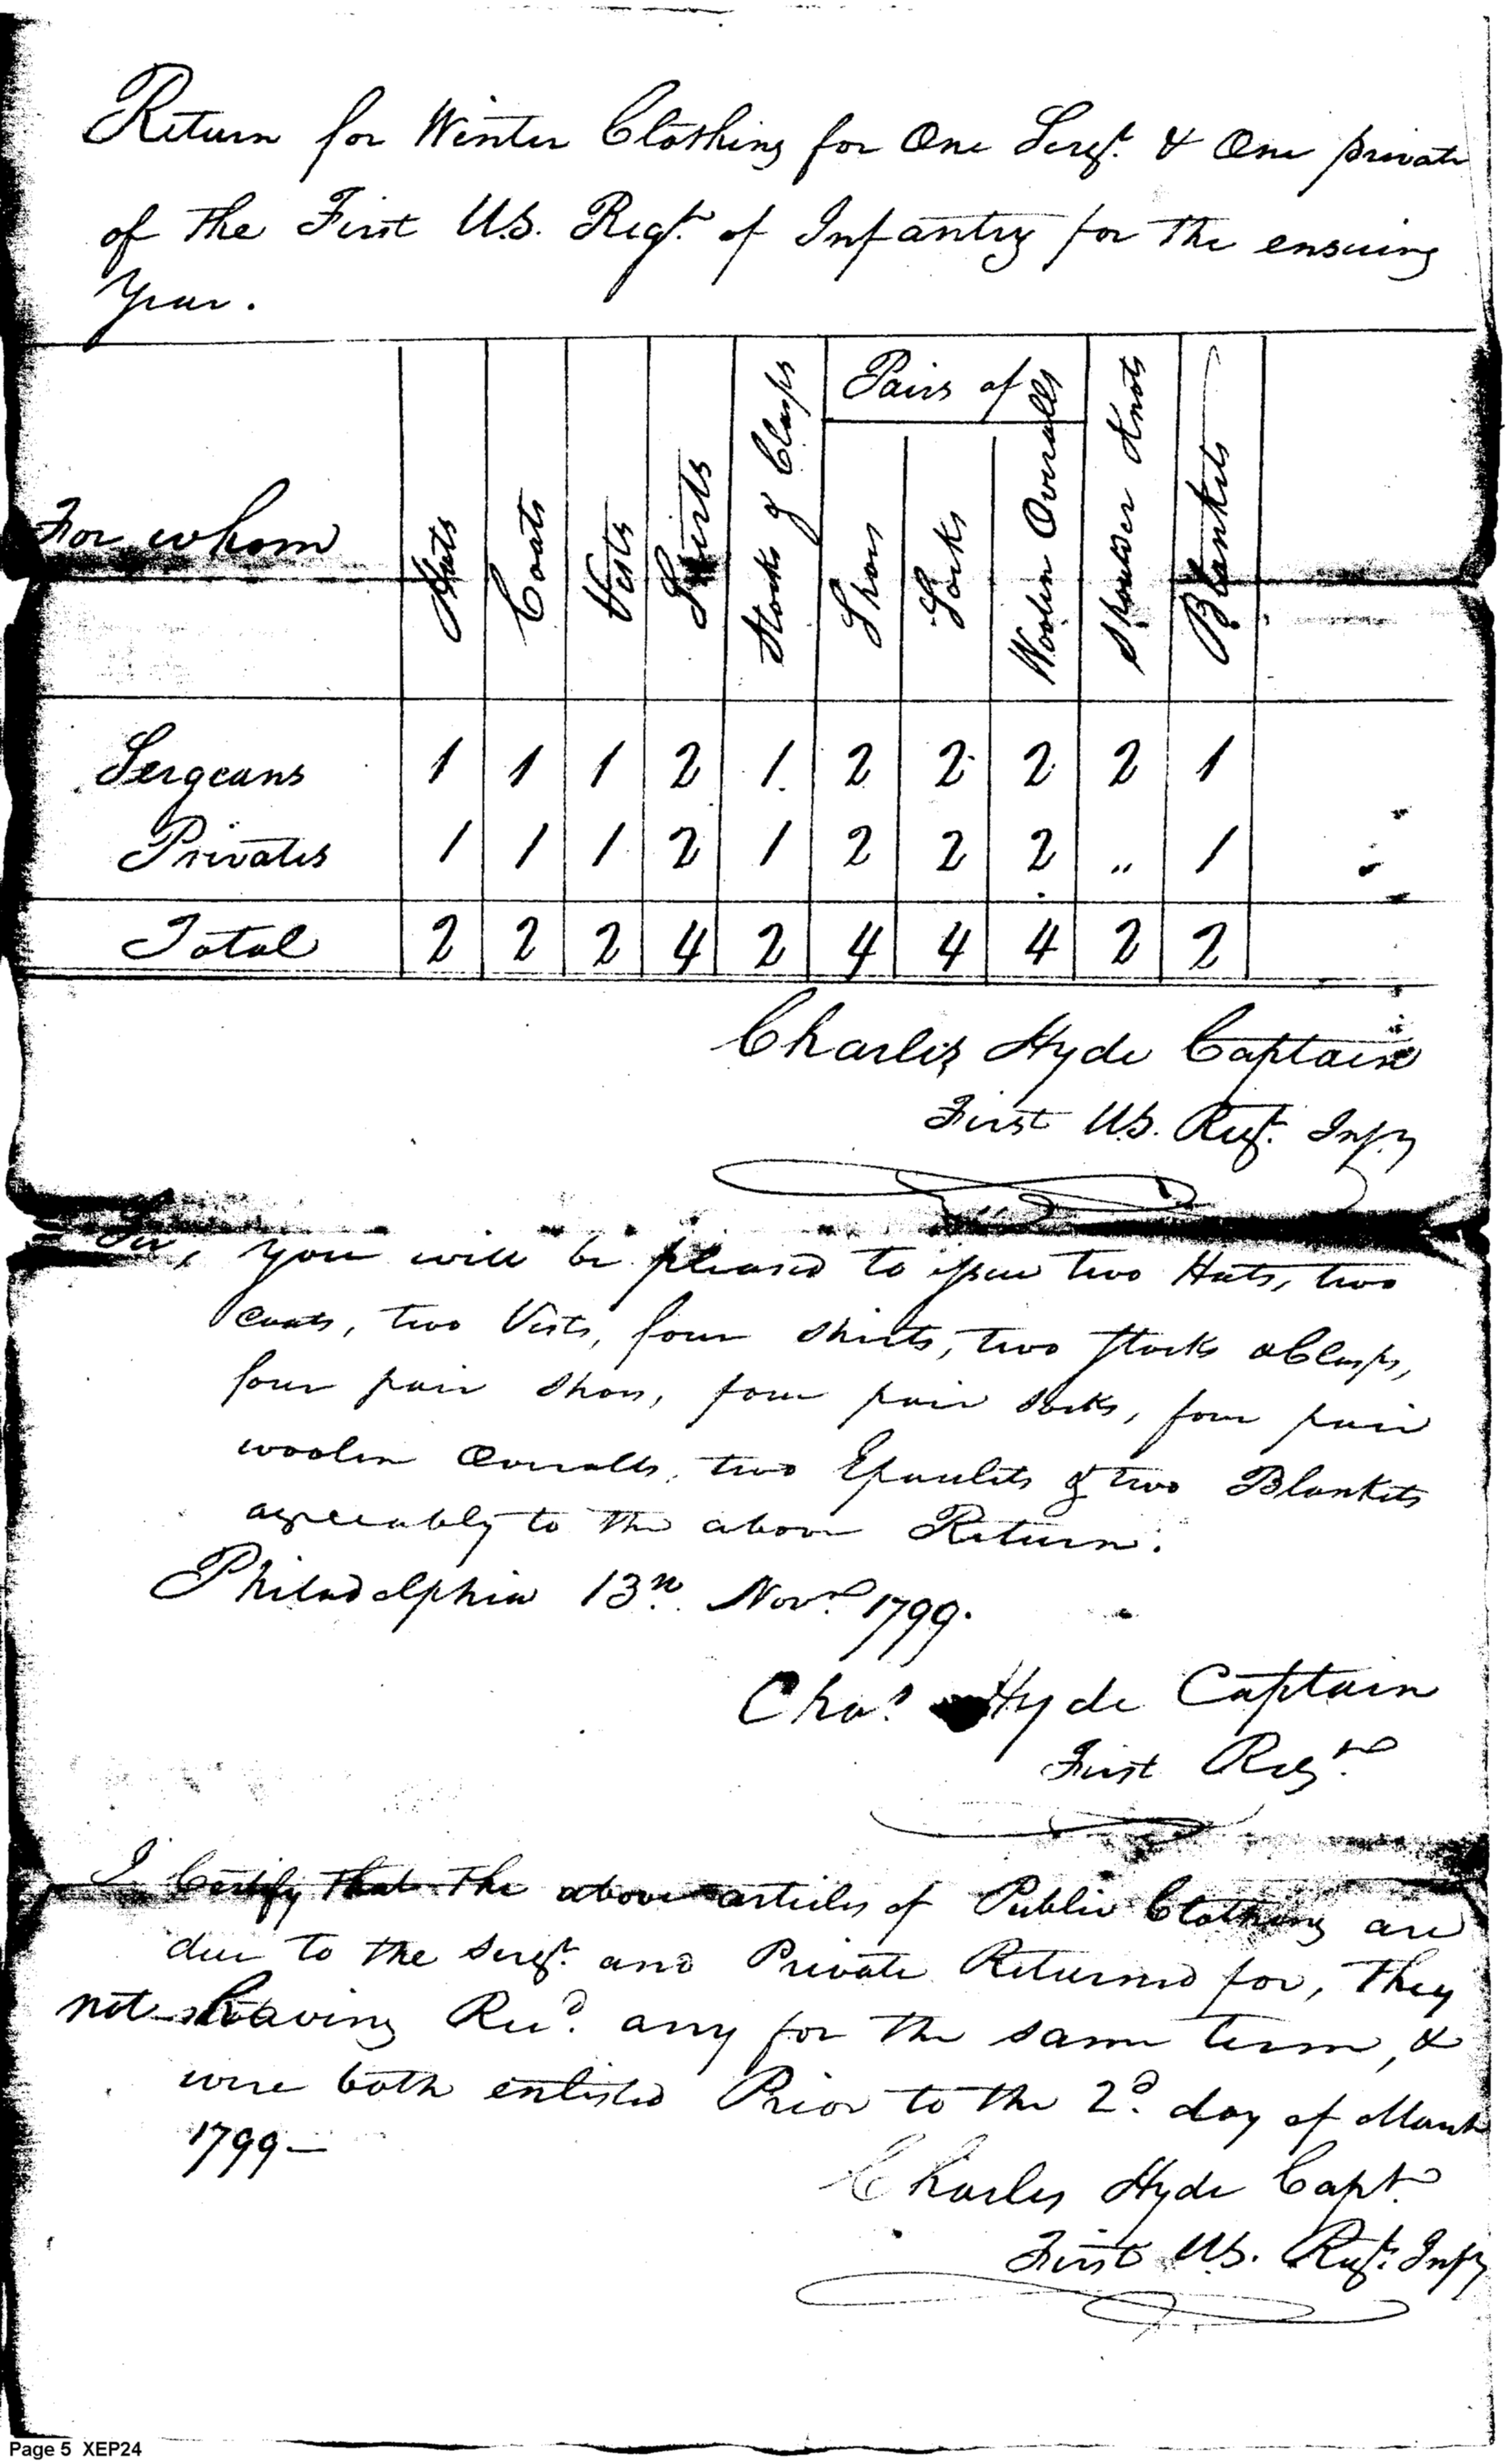 Return for Winter Clothing for One Sergt. & One private
of the First U.S. Regt. of Infantry for the ensuing
Year.
For whom
Hats
Coats
Vests
Shirts
Stocks & Clasps
Pairs of
Shoes
Socks
Woolen Overalls
Shoulder Knots
Blankets
Sergeans 1 1 1 2 1 2 2 2 2 1
Privates 1 1 1 2 1 2 2 2 " 1
Total 2 2 2 4 2 4 4 4 2 2
Charles Hyde Captain
First U.S. Regt. Infy
Sir, you will be pleased to issue two Hats, two
Coats, two Vests, four shirts, two stocks & Clasps,
four pair shoes, four pair socks, four pair
woolen Overalls, two Epaulets & two Blankets
agreeably to the above Return.
Philadelphia 13th. Novr. 1799.
Chas. Hyde Captain
First Regt.
I Certify that the above articles of Public Clothing are
due to the sergt. and Private Returned for, they
not having Recd. any for the same term, &
were both enlisted Prior to the 2d. day of March
1799—
Charles Hyde Capt.
First U.S. Regt. Infy
Page 5 XEP24